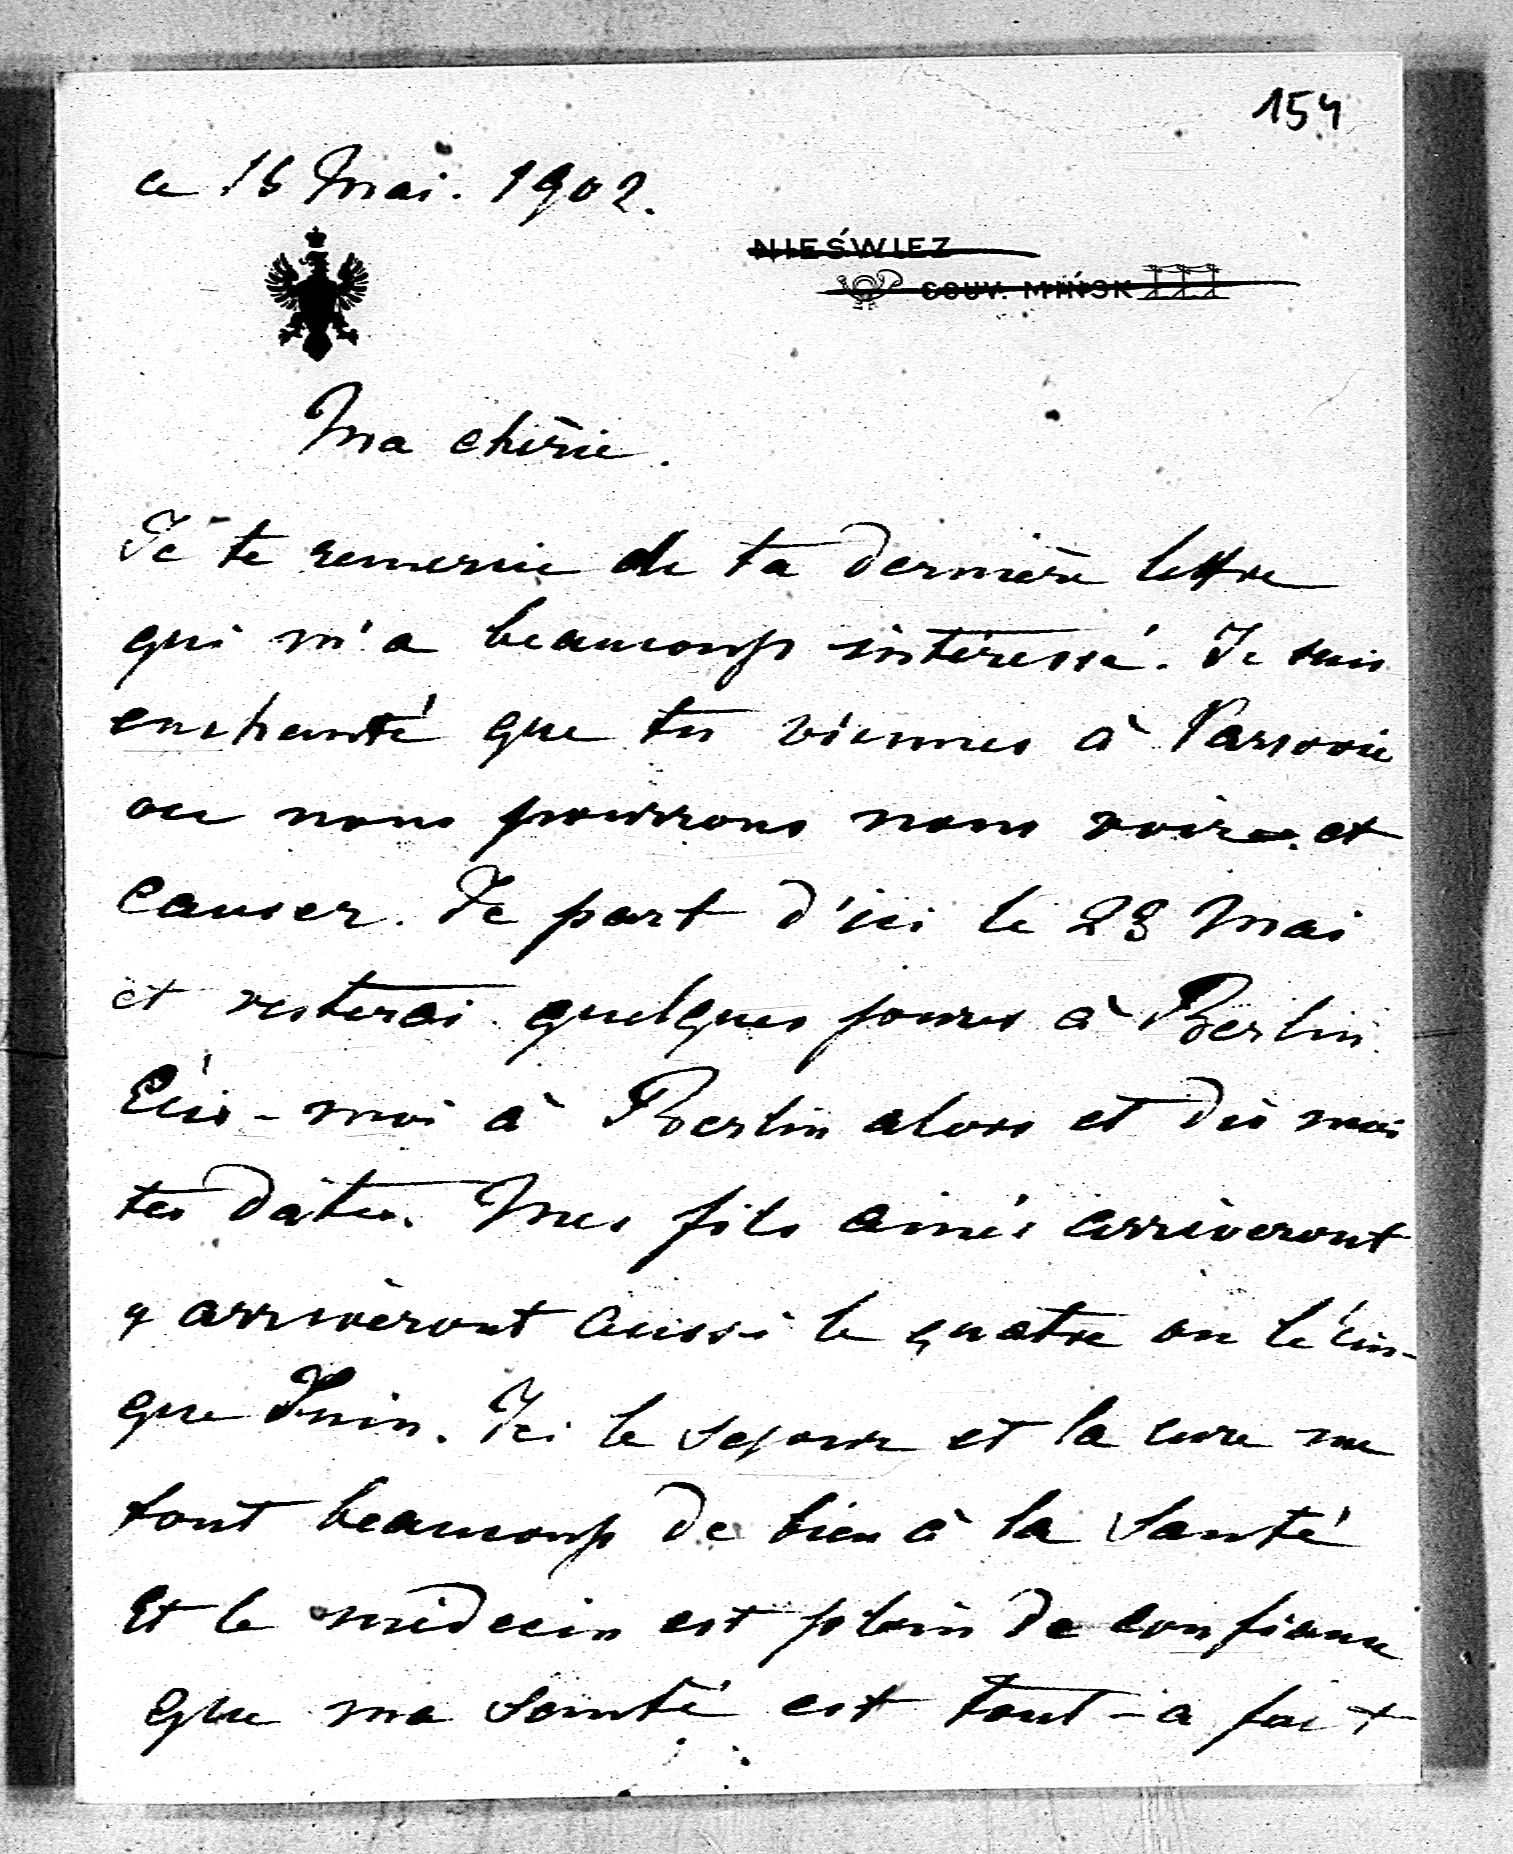 154
ce 16 Mai. 1902.
NIEŚWIEZ
GOUV. MIŃSK
Ma chérie.
Je te remercie de ta dernière lettre
qui m'a beaucoup intéressé. Je suis
enchanté que tu viennes à Varsovie
ou nous pourrons nous voir et
causer. Je part d'ici le 28 Mai
et resterai quelques jours à Berlin.
Ecris-moi à Berlin alors et dis moi
tes dates. Mes fils ainés arriveront
y arriveront aussi le quatre ou le cin-
que Juin. Ici le sejour et la cure me
font beaucoup de bien à la Santé
Et le médecin est plein de confiance
que ma Santé est tout-a fait